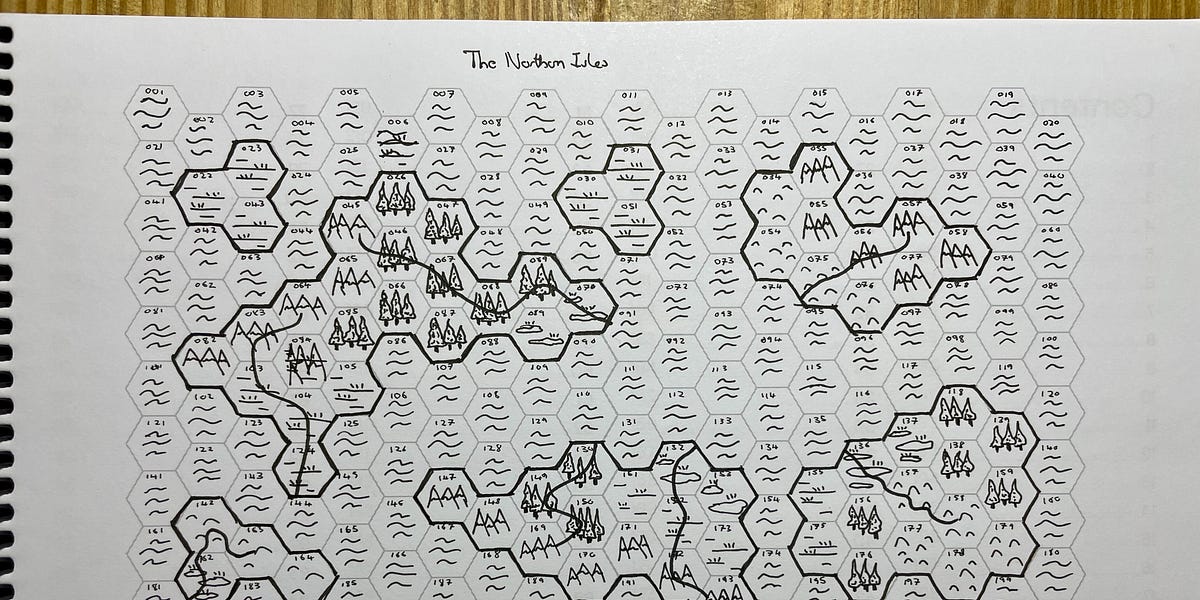 The Northern Isles
001 003 005 007 009 011 013 015 017 019
002 004 006 008 010 012 014 016 018 020
021 023 025 027 029 031 033 035 037 039
022 024 026 028 030 034 036 038 040
041 043 045 047 049 051 053 055 057 059
042 044 046 048 050 052 054 056 058 060
063 065 067 069 071 073 075 077 079
062 064 066 068 070 072 074 076 078 080
081 083 085 087 089 091 093 095 097 099
082 084 086 088 090 092 094 096 098 100
101 103 105 107 109 111 113 115 117 119
102 104 106 108 110 112 114 116 118 120
121 123 125 127 129 131 133 135 137 139
122 124 126 128 130 132 134 136 138 140
141 143 147 149 153 155 157 159
142 144 146 148 150 152 154 156 158 160
161 163 165 167 169 171 173 175 177 179
162 164 166 168 170 172 174 176 178 180
181 183 185 187 189 191 193 195 197 199